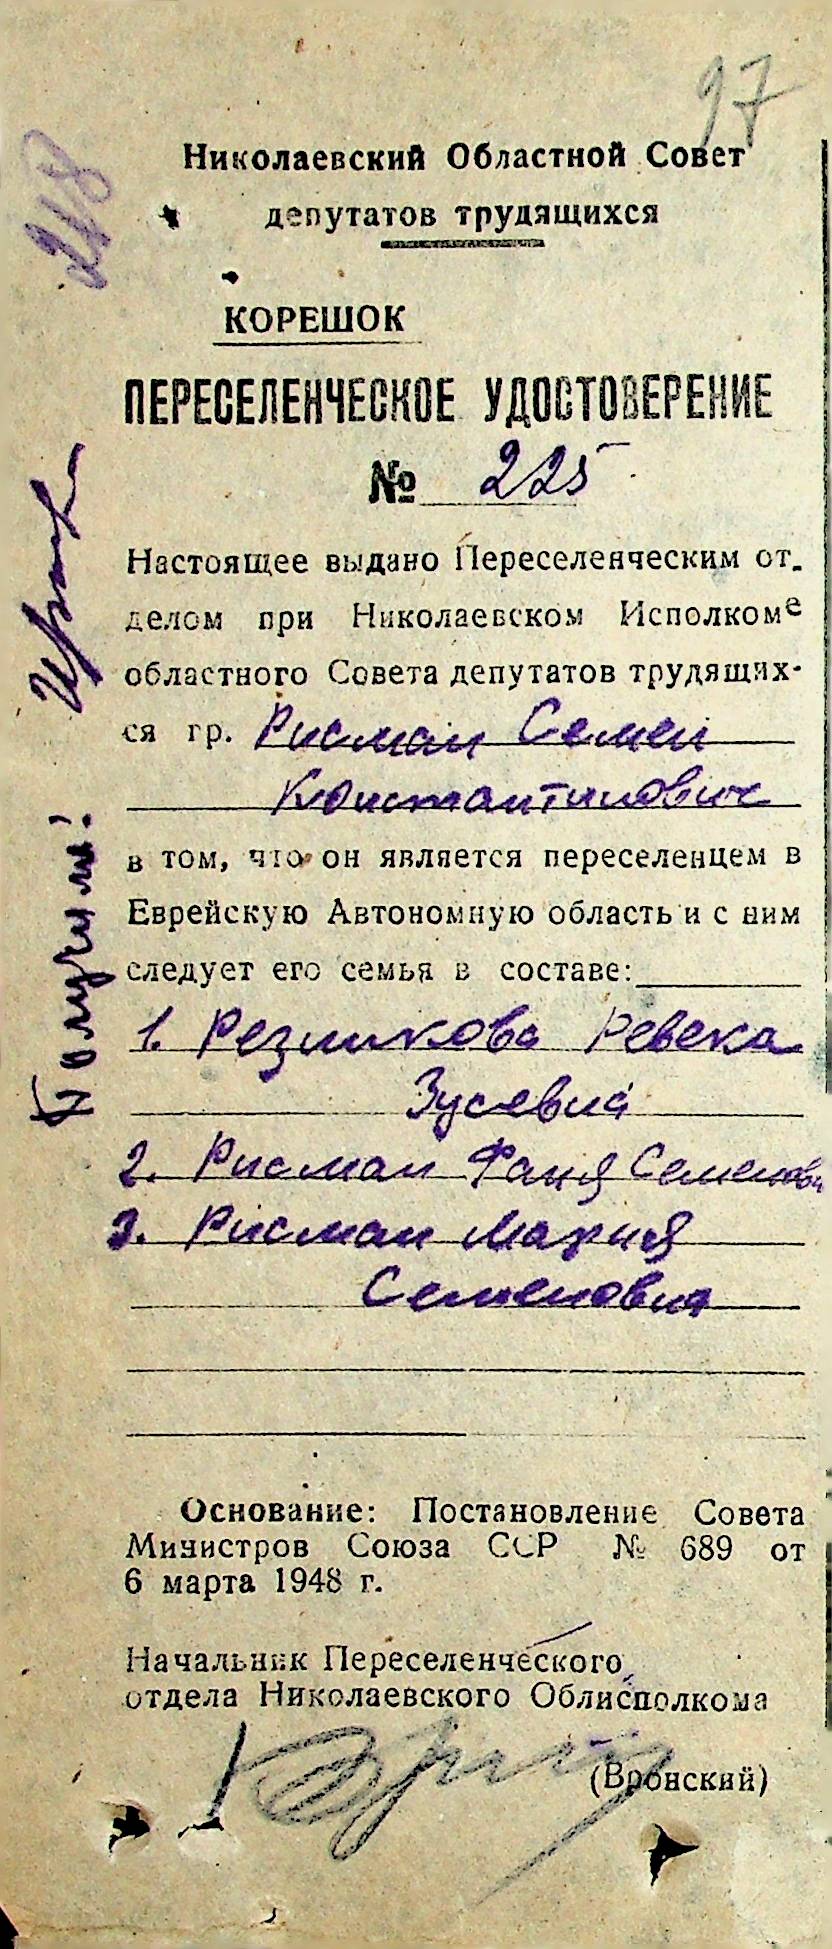 97
218
Николаевский Областной Совет
депутатов трудящихся
КОРЕШОК
ПЕРЕСЕЛЕНЧЕСКОЕ УДОСТОВЕРЕНИЕ
№ 225
Настоящее выдано Переселенческим от-
делом при Николаевском Исполкоме
областного Совета депутатов трудящих-
ся гр. Рисман Семен
Константинович
в том, что он является переселенцем в
Еврейскую Автономную область и с ним
следует его семья в составе:
1. Резникова Ревека
Зусевна
2. Рисман Фаня Семеновн
3. Рисман Мария
Семеновна
Основание: Постановление Совета
Министров Союза ССР № 689 от
6 марта 1948 г.
Начальник Переселенческого
отдела Николаевского Облисполкома
(Вронский)
Получил: